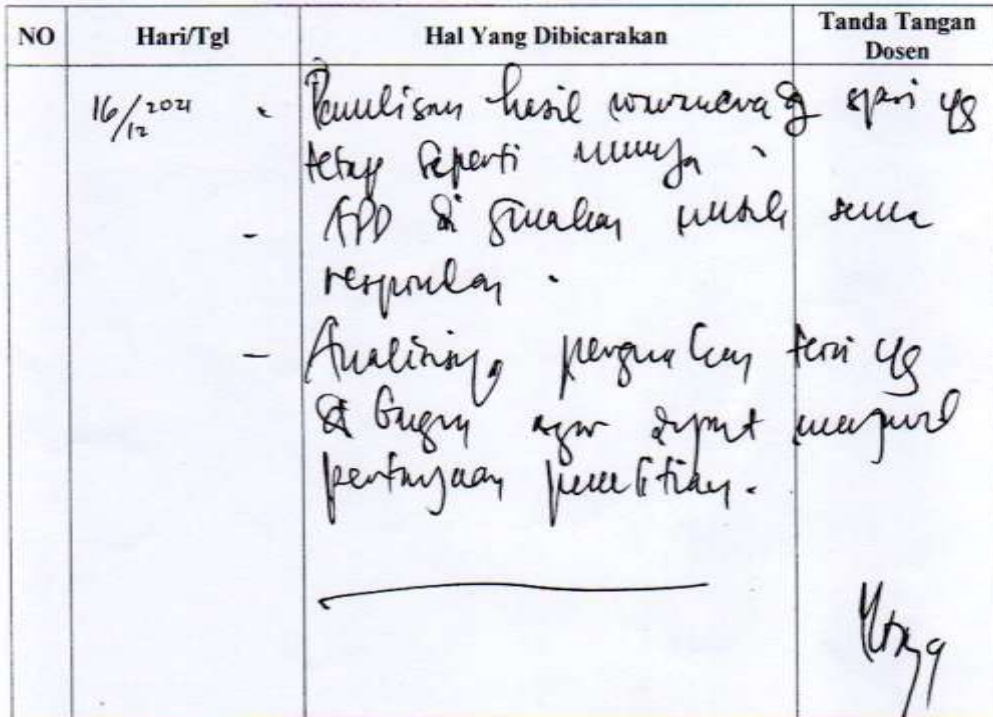 NO Hari/Tgl Hal Yang Dibicarakan Tanda Tangan Dosen
16/12 2021 - Penulisan hasil wawancara yg
tetap seperti
- APD di gunakan untuk semua
responden .
- Analisisnya pergunakan teori yg
di agar dapat
pertanyaan penelitian .